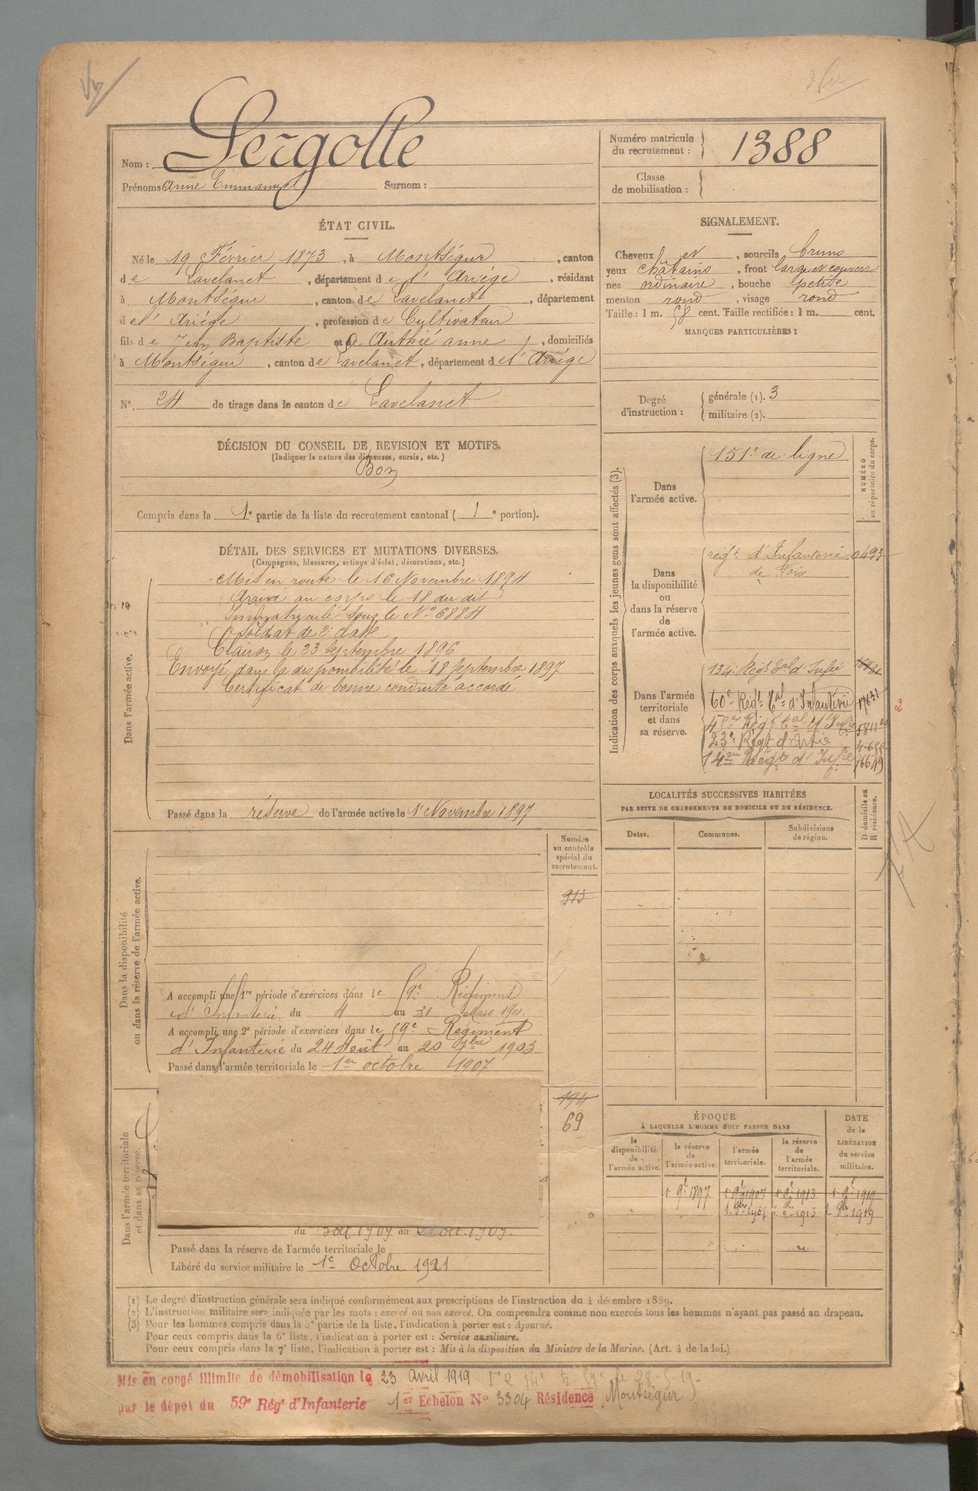 Nom : Sergolle
Prénoms Anne Emmanuel Surnom :
Numéro matricule du recrutement : 1388
Classe de mobilisation :
ÉTAT CIVIL.
Né le 19 Février 1873, à Montségur, canton
de Lavelanet, département de l'Ariège, résidant
à Montségur, canton de Lavelanet, département
de l'Ariège, profession de Cultivateur
fils de Jean Baptiste et de Authié anne, domiciliés
à Montségur, canton de Lavelanet, département de l'Ariège
N° 24 de tirage dans le canton de Lavelanet
SIGNALEMENT.
Cheveux et, sourcils bruns
yeux châtains, front large et couvert
nez ordinaire, bouche petite
menton rond, visage rond
Taille : 1 m. 58 cent. Taille rectifiée : 1 m. cent.
MARQUES PARTICULIÈRES :
Degré d'instruction : générale (1). 3
militaire (2).
DÉCISION DU CONSEIL DE REVISION ET MOTIFS.
(Indiquer la nature des dispenses, sursis, etc.)
Bon
Compris dans la 1e partie de la liste du recrutement cantonal ( 1e portion).
DÉTAIL DES SERVICES ET MUTATIONS DIVERSES.
(Campagnes, blessures, actions d'éclat, décorations, etc.)
Dans l'armée active.
Mis en route le 16 Novembre 1894
Arrivé au corps le 18 du dit
Immatriculé sous le N° 6884
Soldat de 2e classe
Clairon le 23 Septembre 1896
Envoyé dans la disponibilité le 18 Septembre 1897
Certificat de bonne conduite accordé
Passé dans la réserve de l'armée active le 1 Novembre 1897
Indication des corps auxquels les jeunes gens sont affectés (3).
NUMÉRO au répertoire du corps.
Dans l'armée active. 151e de ligne
Dans la disponibilité ou dans la réserve de l'armée active.
régt d'Infanterie 0493
de Foix
Dans l'armée territoriale et dans sa réserve.
134e Régt tal d'Infie
60e Régt tal d'Infanterie
23e Régt d'Artie
14e Régt d'Infie
LOCALITÉS SUCCESSIVES HABITÉES
PAR SUITE DE CHANGEMENTS DE DOMICILE OU DE RÉSIDENCE.
Dates. Communes. Subdivisions de région. D domicile ou R résidence.
Numéro au contrôle spécial du recrutement.
313
Dans la disponibilité ou dans la réserve de l'armée active.
A accompli une 1re période d'exercices dans le 59e Régiment
d'Infanterie du 4 au 31 Mars 1901.
A accompli une 2e période d'exercices dans le 59e Régiment
d'Infanterie du 24 Août au 20 7bre 1903
Passé dans l'armée territoriale le 1er octobre 1907
194
69
Dans l'armée territoriale et dans sa réserve.
Passé dans la réserve de l'armée territoriale le
Libéré du service militaire le 1e Octobre 1921
ÉPOQUE
À LAQUELLE L'HOMME DOIT PASSER DANS
DATE de la LIBÉRATION du service militaire.
la disponibilité de l'armée active. la réserve de l'armée active. l'armée territoriale. la réserve de l'armée territoriale.
(1) Le degré d'instruction générale sera indiqué conformément aux prescriptions de l'instruction du 4 décembre 1889.
(2) L'instruction militaire sera indiquée par les mots : exercé ou non exercé. On comprendra comme non exercés tous les hommes n'ayant pas passé au drapeau.
(3) Pour les hommes compris dans la 5e partie de la liste, l'indication à porter est : Ajourné.
Pour ceux compris dans la 6e liste, l'indication à porter est : Service auxiliaire.
Pour ceux compris dans la 7e liste, l'indication à porter est : Mis à la disposition du Ministre de la Marine. (Art. 4 de la loi.)
Mis en congé illimité de démobilisation le 23 Avril 1919
par le dépôt du 59e Régt d'Infanterie 1er Echelon N° 3304 Résidence Montségur